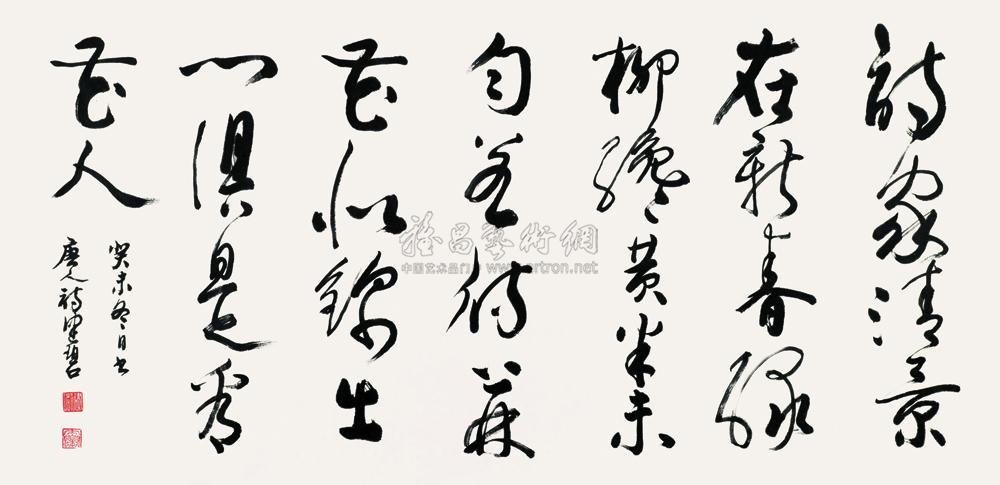 詩家清景
在新春綠
柳纔黃半未
勻若待上林
花似錦出
門俱是看
花人
癸未冬日書
唐人詩
雅昌藝術網
中国艺术品门户 www.artron.net